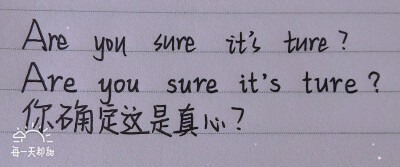 Are you sure it's ture?
Are you sure it's ture?
你确定这是真心?
每一天都甜